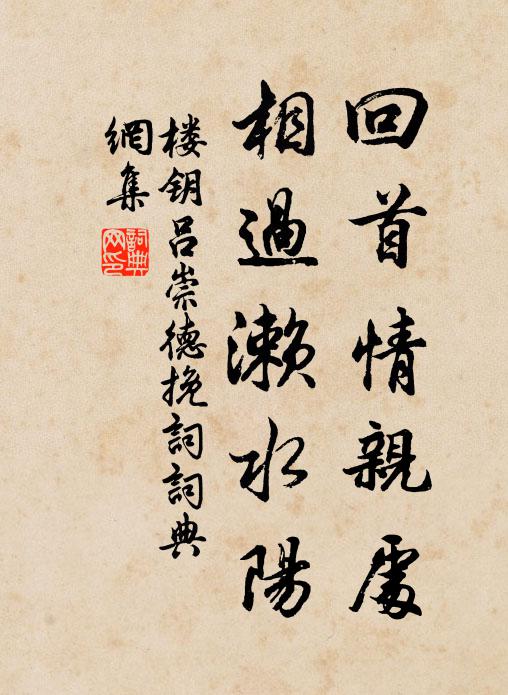 回首情親處
相過瀨水陽
楼钥吕崇德挽詞詞典
網集
詞典网印